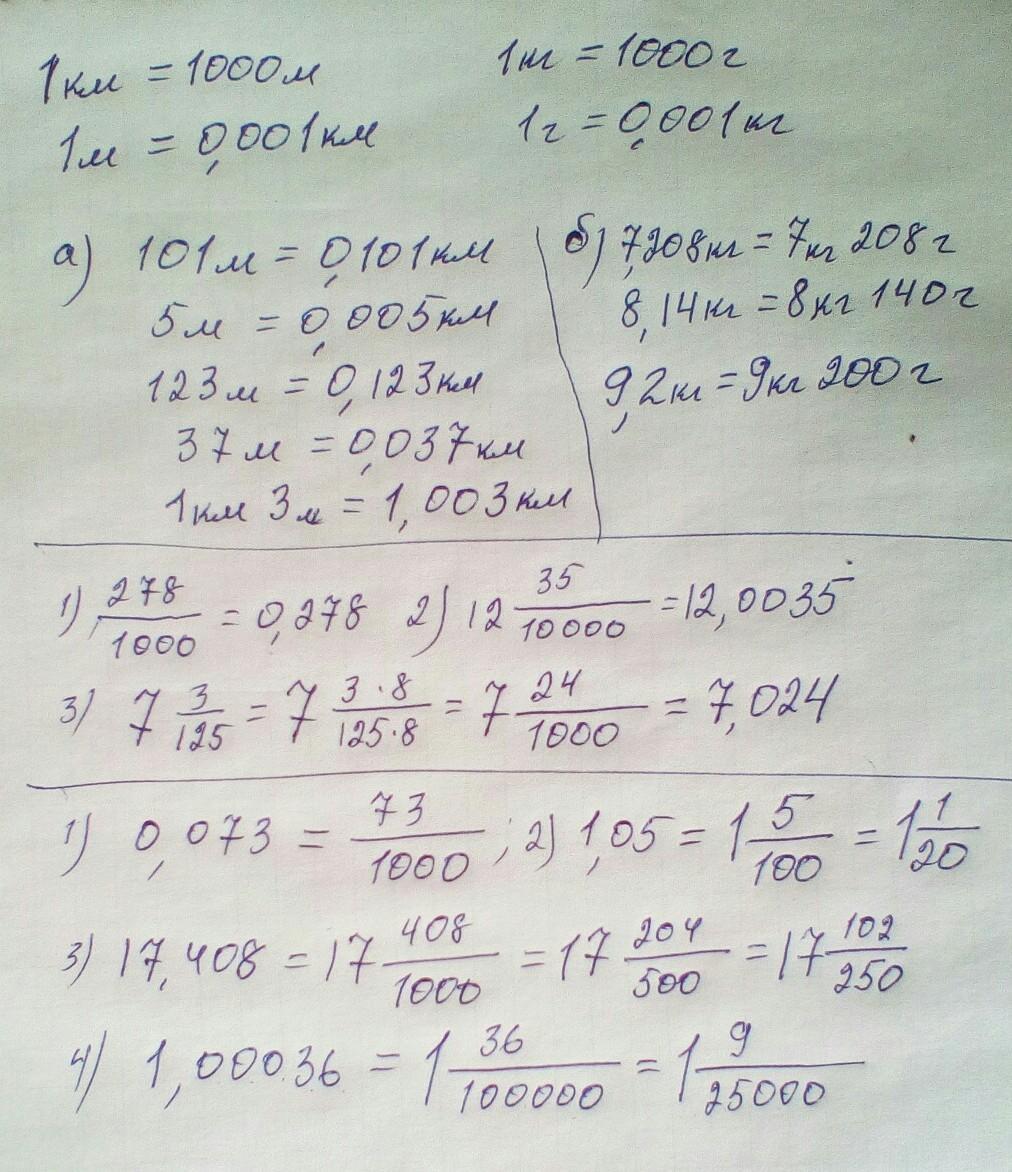 1км = 1000м
1кг = 1000г
1м = 0,001км
1г = 0,001кг
а) 101м = 0,101км
5м = 0,005км
123м = 0,123км
37м = 0,037км
1км 3м = 1,003км
б) 7,208кг = 7кг 208г
8,14кг = 8кг 140г
9,2кг = 9кг 200г
1) 278/1000 = 0,278 2) 12 35/10000 = 12,0035
3) 7 3/125 = 7 3·8/125·8 = 7 24/1000 = 7,024
1) 0,073 = 73/1000 ; 2) 1,05 = 1 5/100 = 1 1/20
3) 17,408 = 17 408/1000 = 17 204/500 = 17 102/250
4) 1,00036 = 1 36/100000 = 1 9/25000